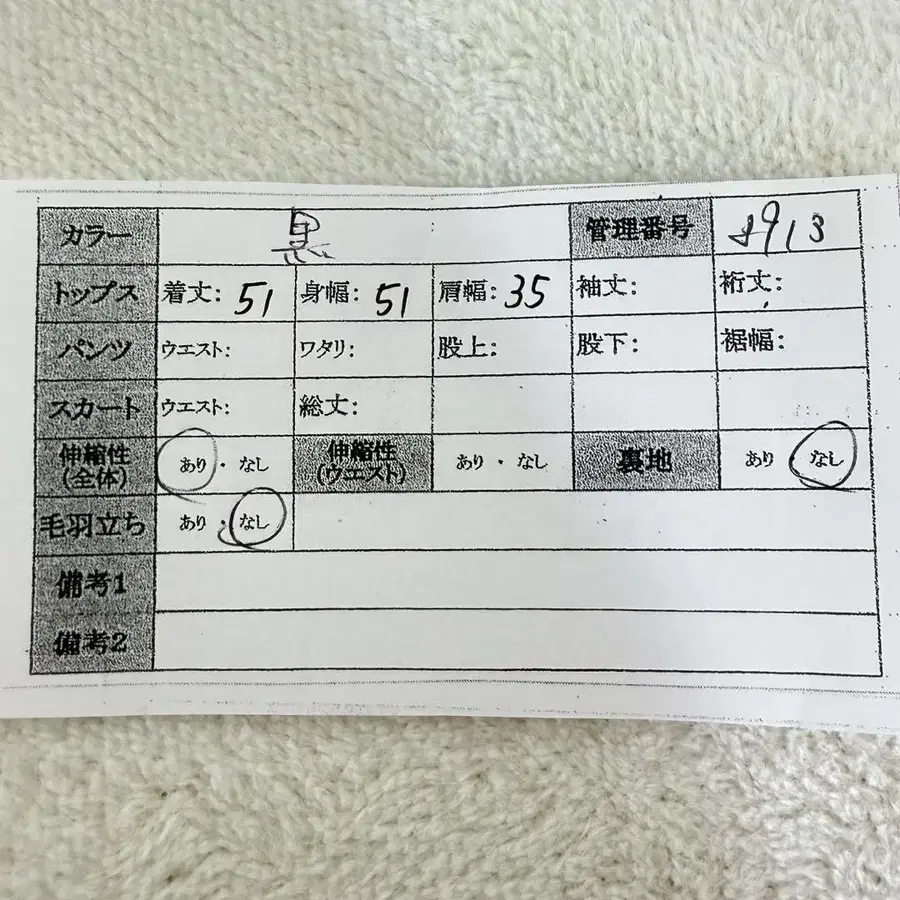 カラー 黒 管理番号 8913
トップス 着丈: 51 身幅: 51 肩幅: 35 袖丈: 裄丈:
パンツ ウエスト: ワタリ: 股上: 股下: 裾幅:
スカート ウエスト: 総丈:
伸縮性(全体) あり・なし 伸縮性(ウエスト) あり・なし 裏地 あり なし
毛羽立ち あり・なし
備考1
備考2